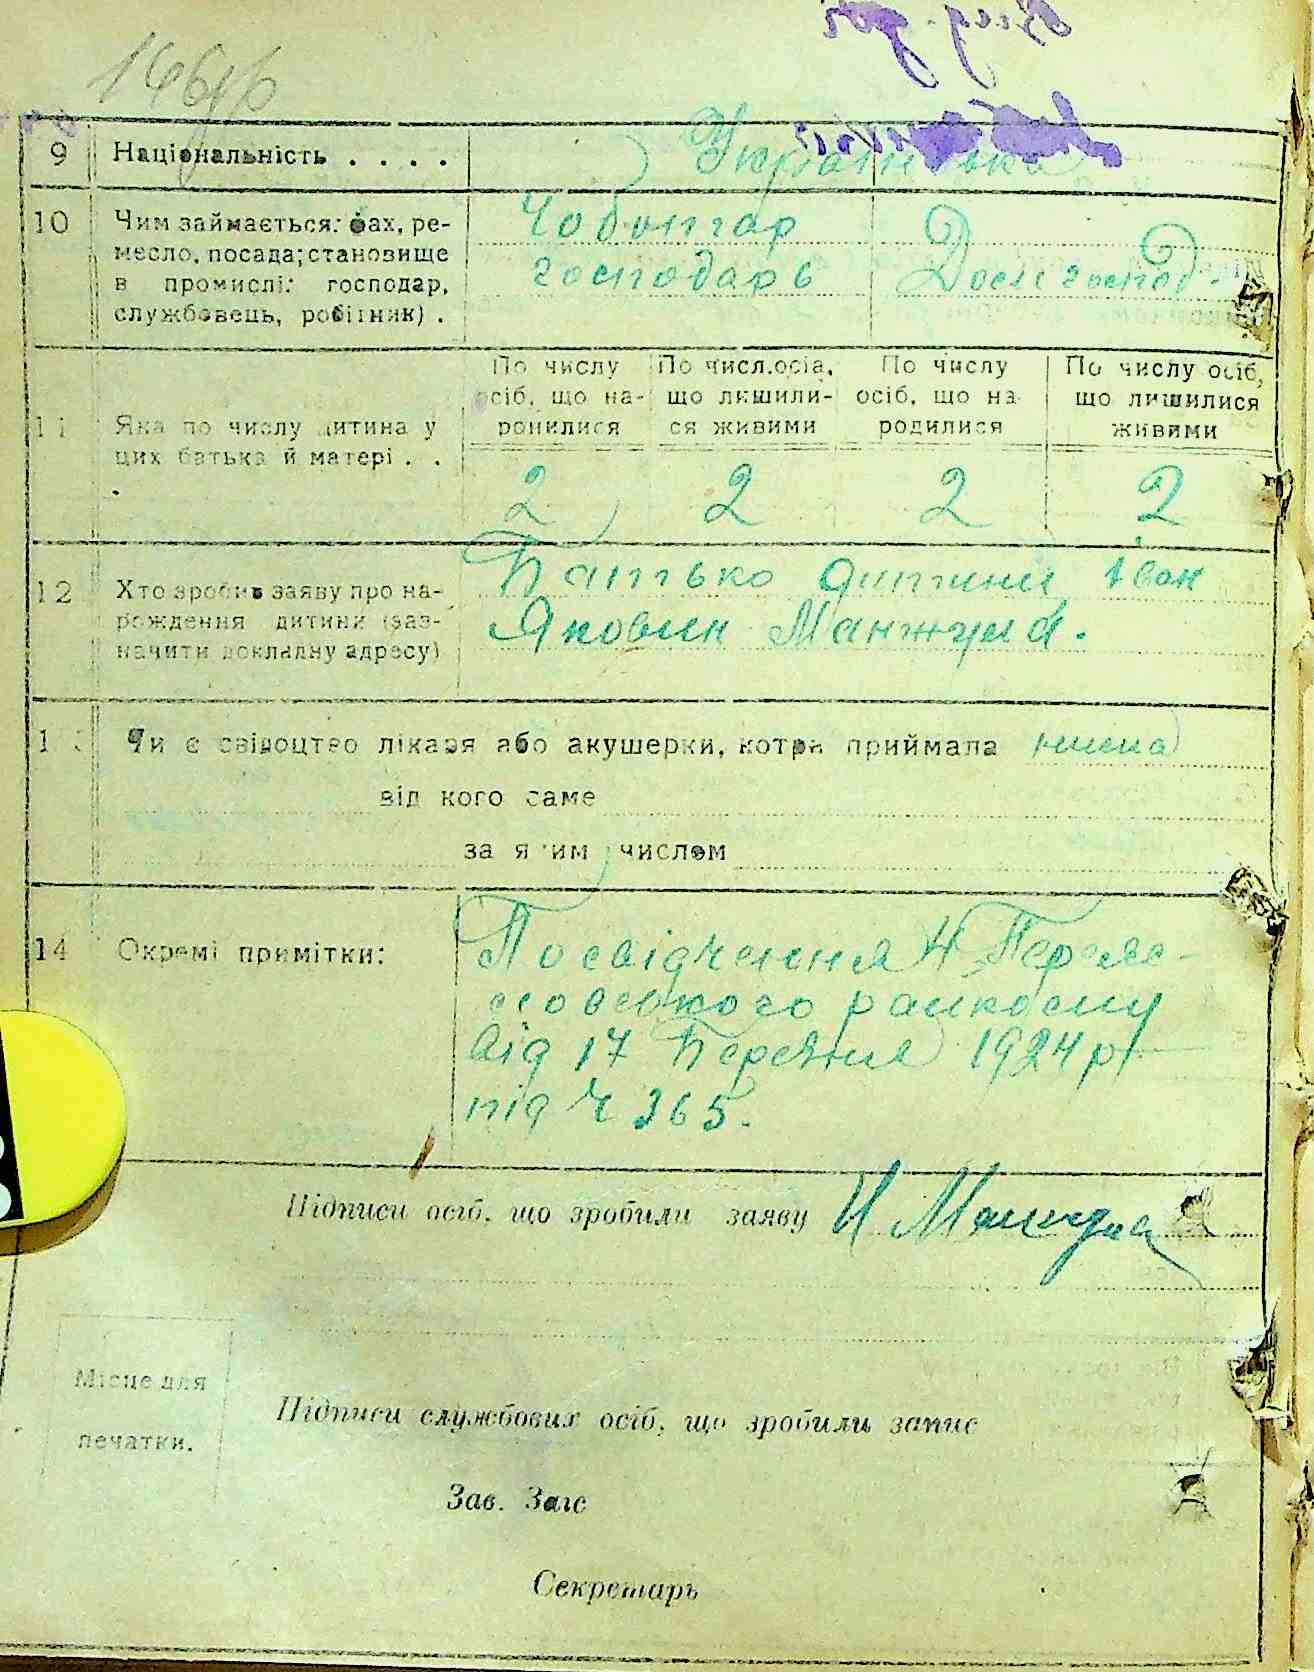 9 Національність . . . . Українська
10 Чим займається: фах, ре-
месло, посада; становище
в промислі: господар,
службовець, робітник) .
Чоботар
господарь
Дом господ.
11 Яка по числу дитина у
цих батька й матері . .
По числу
осіб, що на-
родилися
По числ. осіб,
що лишили-
ся живими
По числу
осіб, що на
родилися
По числу осіб,
що лишилися
живими
2 2 2 2
12 Хто зробив заяву про на-
рождення дитини (заз-
начити докладну адресу)
Батько дитини Іван
Якович Манжула.
13 Чи є свідоцтво лікаря або акушерки, котра приймала нема
від кого саме
за яким числом
14 Окремі примітки:
Посвідчення Н Переяс-
ловського райкосму
від 17 Березня 1924 р
під Ч 365.
Підписи осіб, що зробили заяву И Манжула
Місце для
печатки.
Підписи службових осіб, що зробили запис
Зав. Загс
Секретарь